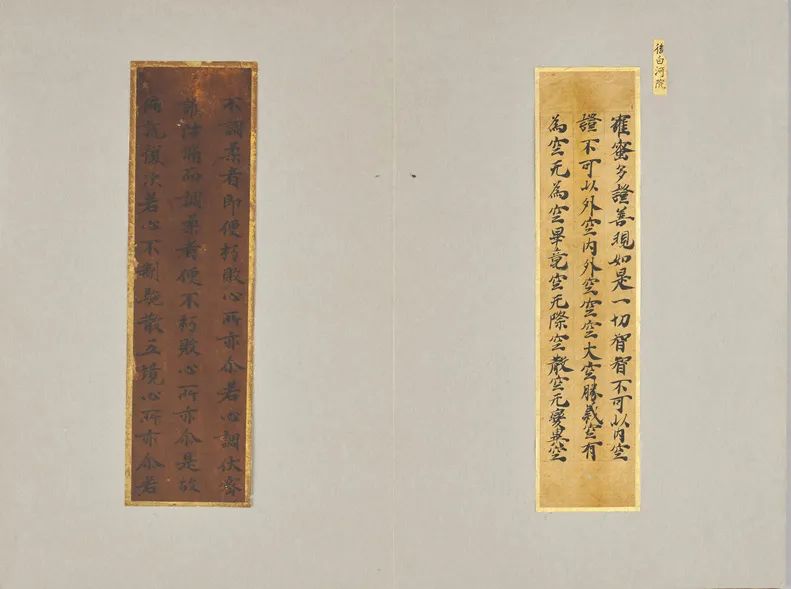 後白河院
羅蜜多證善現如是一切智智不可以內空
證不可以外空內外空空空大空勝義空有
為空无為空畢竟空无際空散空无變異空
不調柔者即便朽敗心所亦尒若心調伏
而調柔者便不朽敗心所亦尒是故
復次若心不制馳散五境心所亦尒若